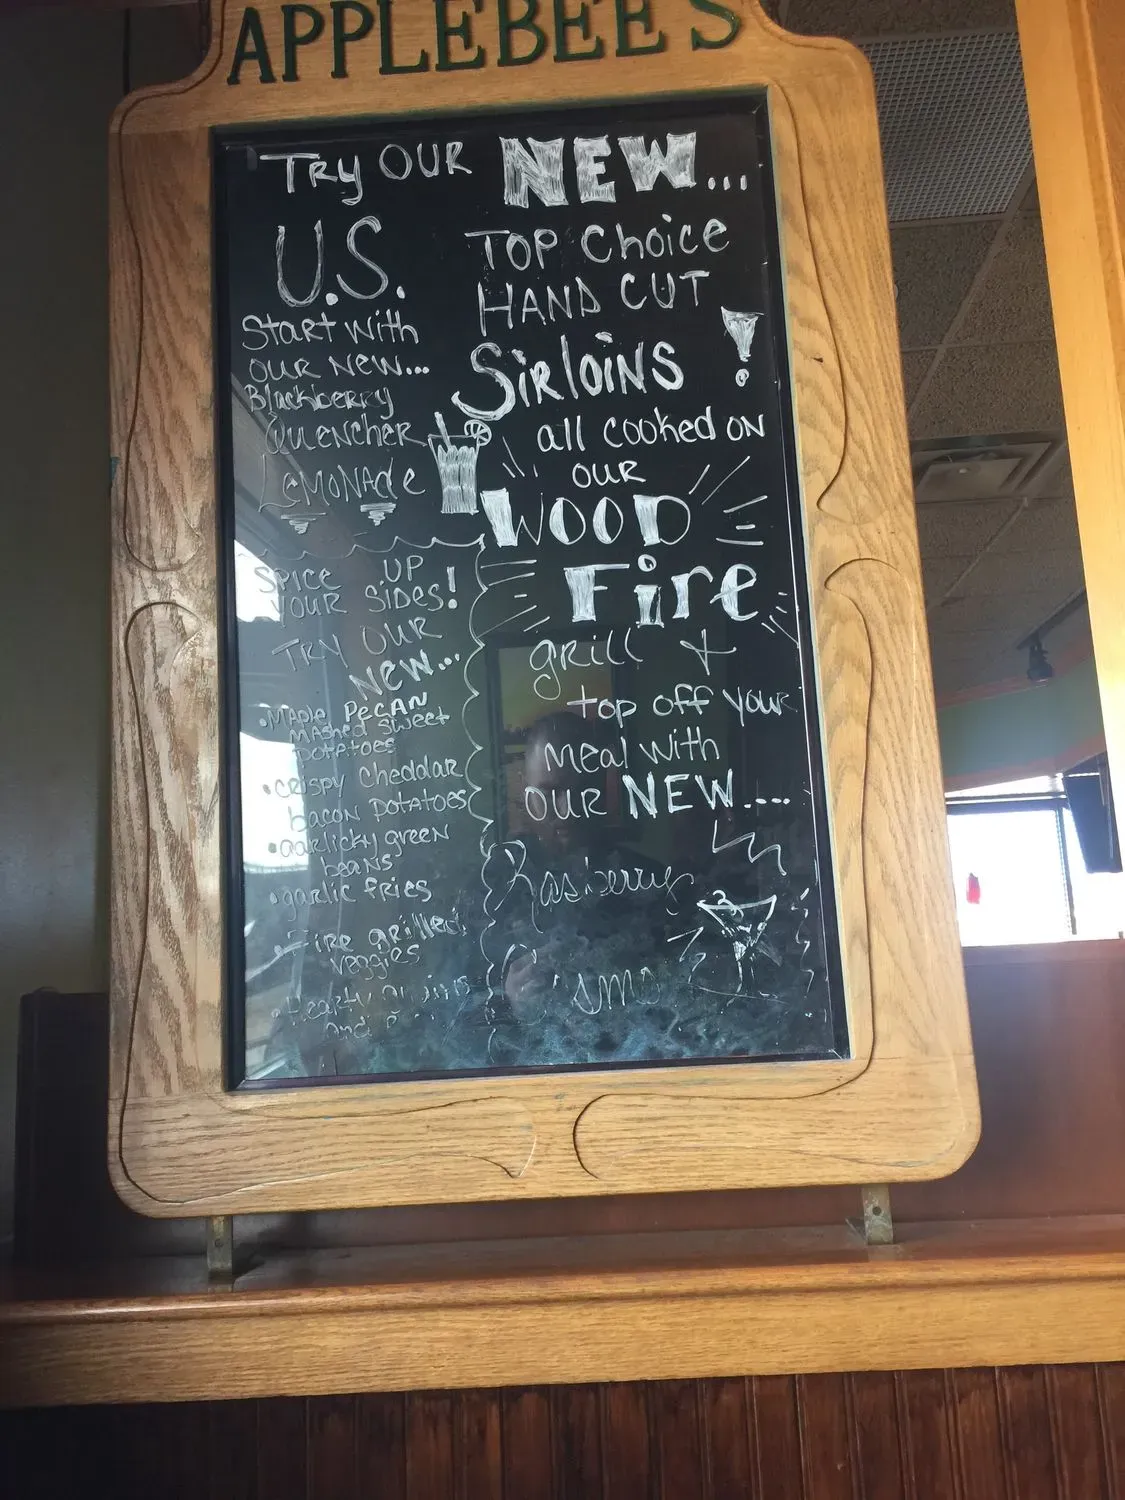 APPLEBEE'S
TRY OUR NEW...
U.S. TOP Choice
HAND CUT
SiRloiNS!
all cooked ON
OUR
WOOD
Fire
grill +
top off your
meal with
OUR NEW....
Rasberry
Start with
OUR NEW...
Blackberry
Quencher
LeMONAde
SPICE UP
YOUR SIDES!
TRY OUR
NEW...
•MAple PeCAN
MAShed Sweet
potatoes
•CRISPY Cheddar
bacon potatoes
•garlicky green
beans
•garlic fries
•Fire grilled
veggies
•Hearty
And